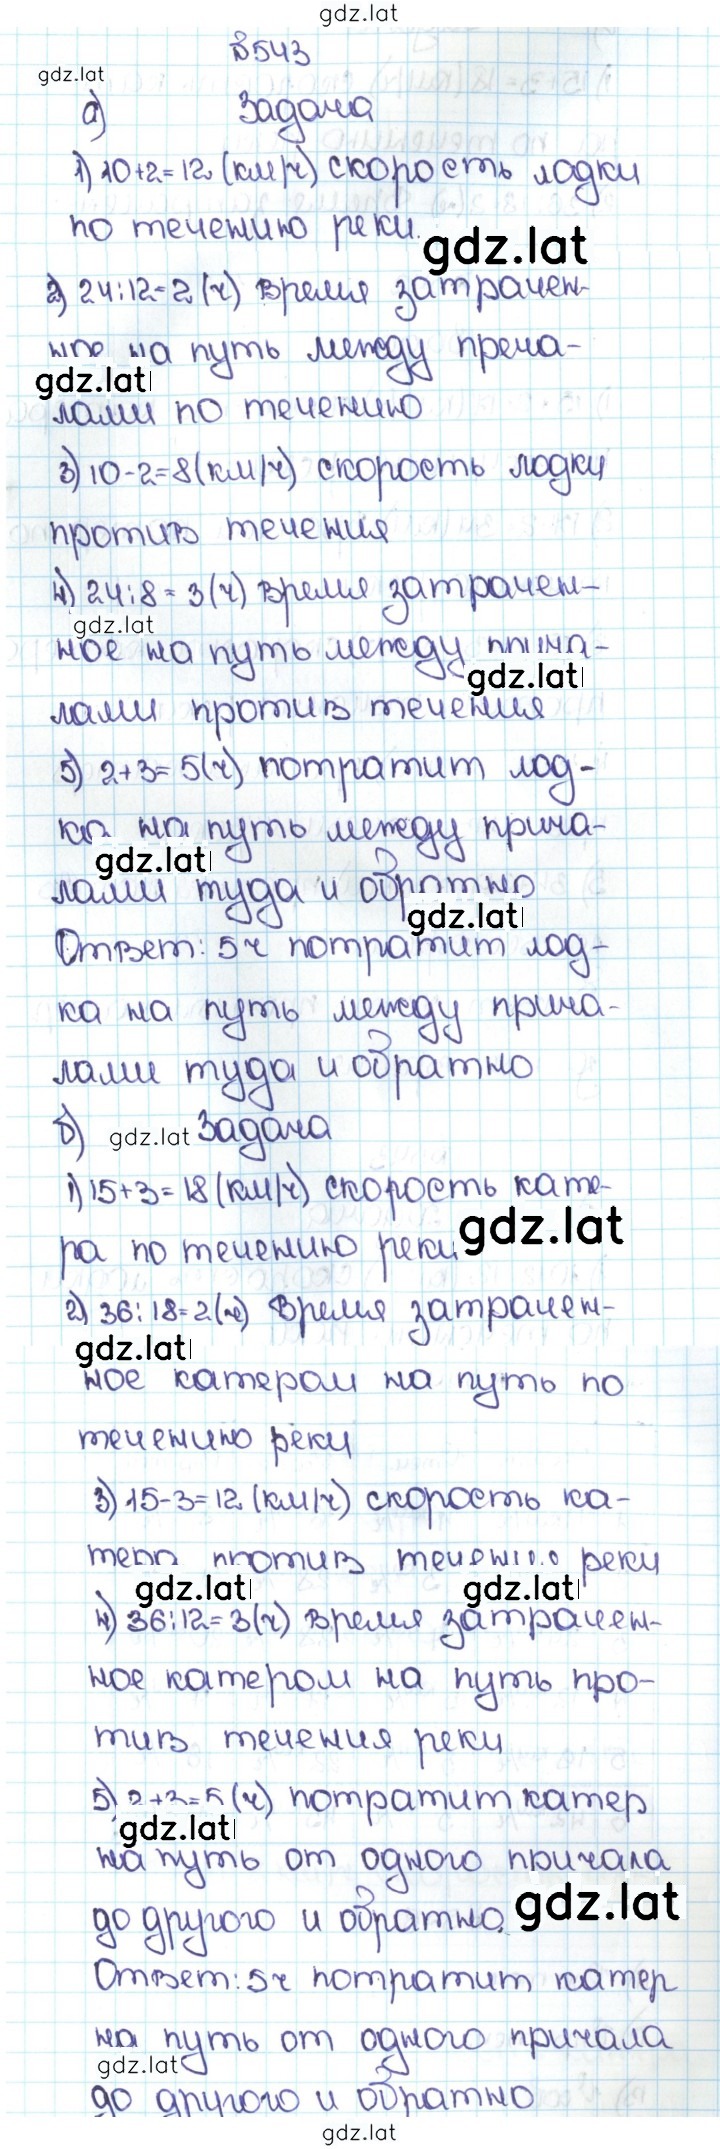 gdz.lat
№543
gdz.lat
а) Задача
1) 10+2=12 (км/ч) скорость лодки
по течению реки.
gdz.lat
2) 24:12=2 (ч) время затрачен-
ное на путь между прича-
gdz.lat
лами по течению
3) 10-2=8(км/ч) скорость лодки
против течения
4) 24:8=3(ч) время затрачен-
gdz.lat
ное на путь между прича-
gdz.lat
лами против течения
5) 2+3=5(ч) потратит лод-
ка на путь между прича-
gdz.lat
лами туда и обратно
gdz.lat
Ответ: 5ч потратит лод-
ка на путь между прича-
лами туда и обратно
б) gdz.lat Задача
1) 15+3=18 (км/ч) скорость кате-
ра по течению реки
gdz.lat
2) 36:18=2(ч) время затрачен-
gdz.lat
ное катером на путь по
течению реки
3) 15-3=12 (км/ч) скорость ка-
тера против течения реки
gdz.lat gdz.lat
4) 36:12=3(ч) время затрачен-
ное катером на путь про-
тив течения реки
5) 2+3=5(ч) потратит катер
gdz.lat
на путь от одного причала
до другого и обратно.
gdz.lat
Ответ: 5ч потратит катер
на путь от одного причала
gdz.lat
до другого и обратно
gdz.lat